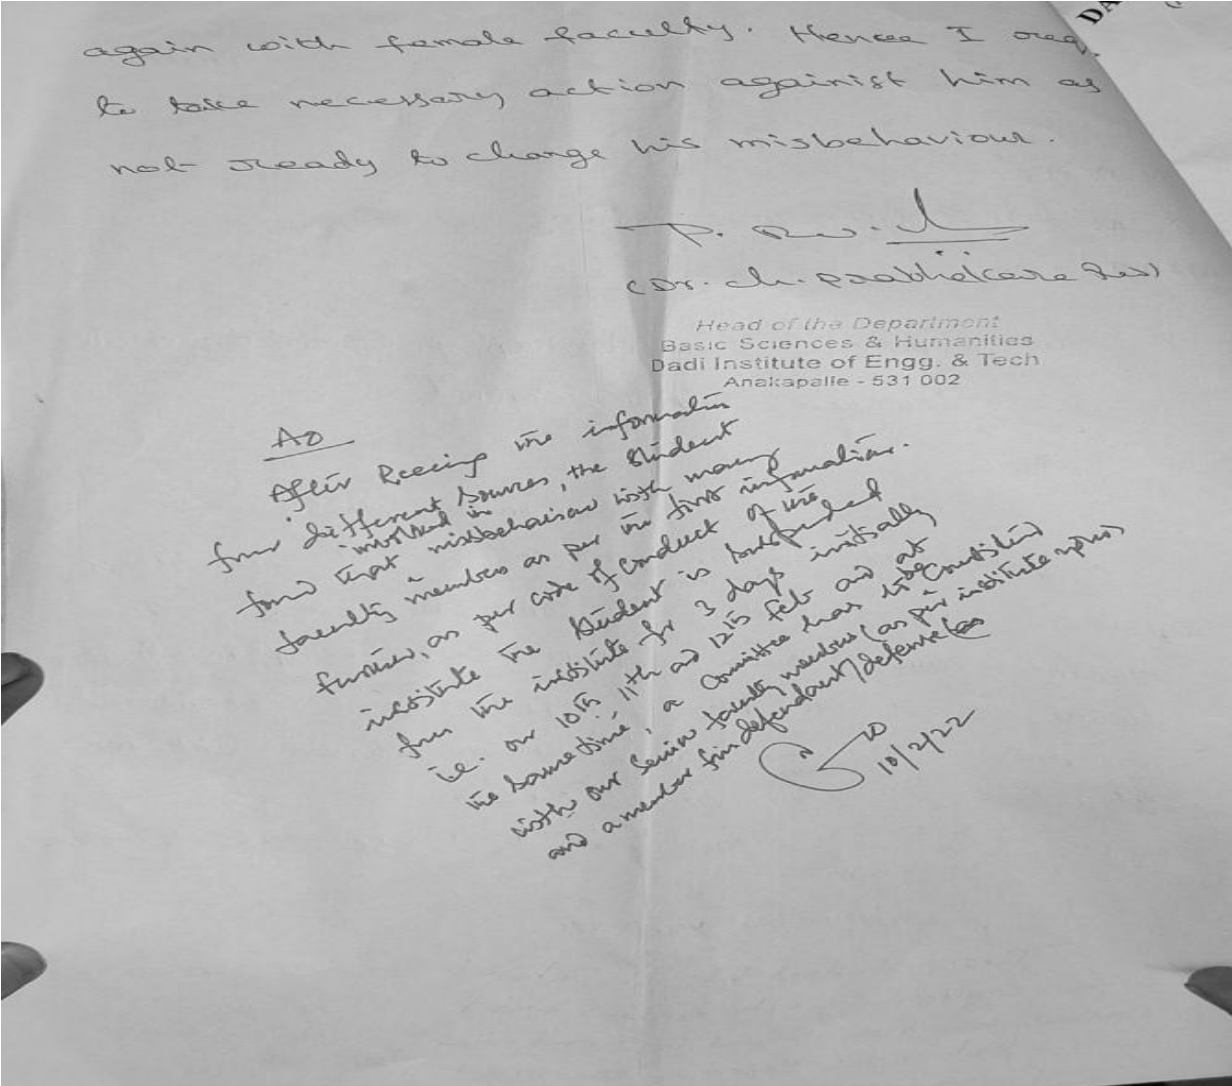 DA
again with female faculty. Hence I req
to take necessary action againist him as
not ready to change his misbehaviour.
P.
(Dr. Ch. Prabhakara Rao)
Head of the Department
Basic Sciences & Humanities
Dadi Institute of Engg. & Tech
Anakapalle - 531 002
AO
After Receing the information
from different sources, the student
involved in
found that misbehaviour with many
faculty members as per the first information.
further, as per code of conduct of the
institute the student is suspended
from the institute for 3 days initially
i.e. on 10th 11th and 12th Feb and at
the same time, a committee has to be constituted
with our senior faculty members (as per institute
and a member from defendant/defense
10/2/22